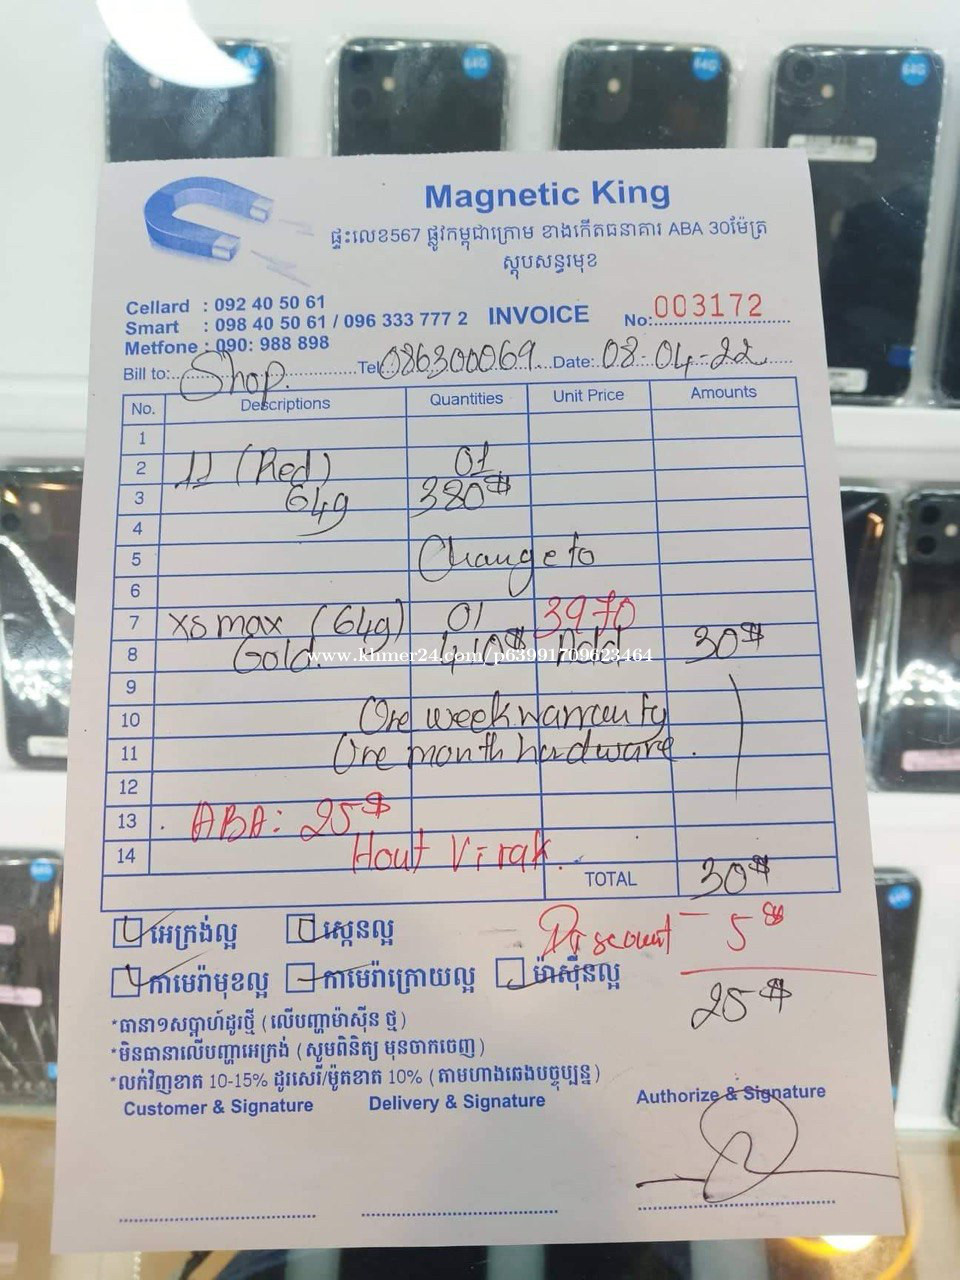 64G
64G
64G
Magnetic King
ផ្ទះលេខ567 ផ្លូវកម្ពុជាក្រោម ខាងកើតធនាគារ ABA 30ម៉ែត្រ
ស្តុបសន្ធរមុខ
Cellard : 092 40 50 61
Smart : 098 40 50 61 / 096 333 777 2 INVOICE No: 003172
Metfone : 090: 988 898
Bill to: Shop. Tel 086300069 Date: 08-04-22
No. Descriptions Quantities Unit Price Amounts
1
2 11 (Red) 01
3 64g 380$
4
5 Change to
6
7 XS max (64g) 01 3970
8 Gold 410$ Add 30$
www.khmer24.com/p63991709623464
9
10 One week warranty
11 One month hardware.
12
13 ABA: 25$
14 Hout Virak.
TOTAL 30$
អេក្រង់ល្អ ស្កេនល្អ Discount - 5$
កាមេរ៉ាមុខល្អ កាមេរ៉ាក្រោយល្អ ម៉ាស៊ីនល្អ
25$
*ធានា១សប្តាហ៍ដូរថ្មី (លើបញ្ហាម៉ាស៊ីន ថ្ម)
*មិនធានាលើបញ្ហាអេក្រង់ (សូមពិនិត្យ មុនចាកចេញ)
*លក់វិញខាត 10-15% ដូរសេរី/ម៉ូតខាត 10% (តាមហាងឆេងបច្ចុប្បន្ន)
Customer & Signature Delivery & Signature Authorize & Signature